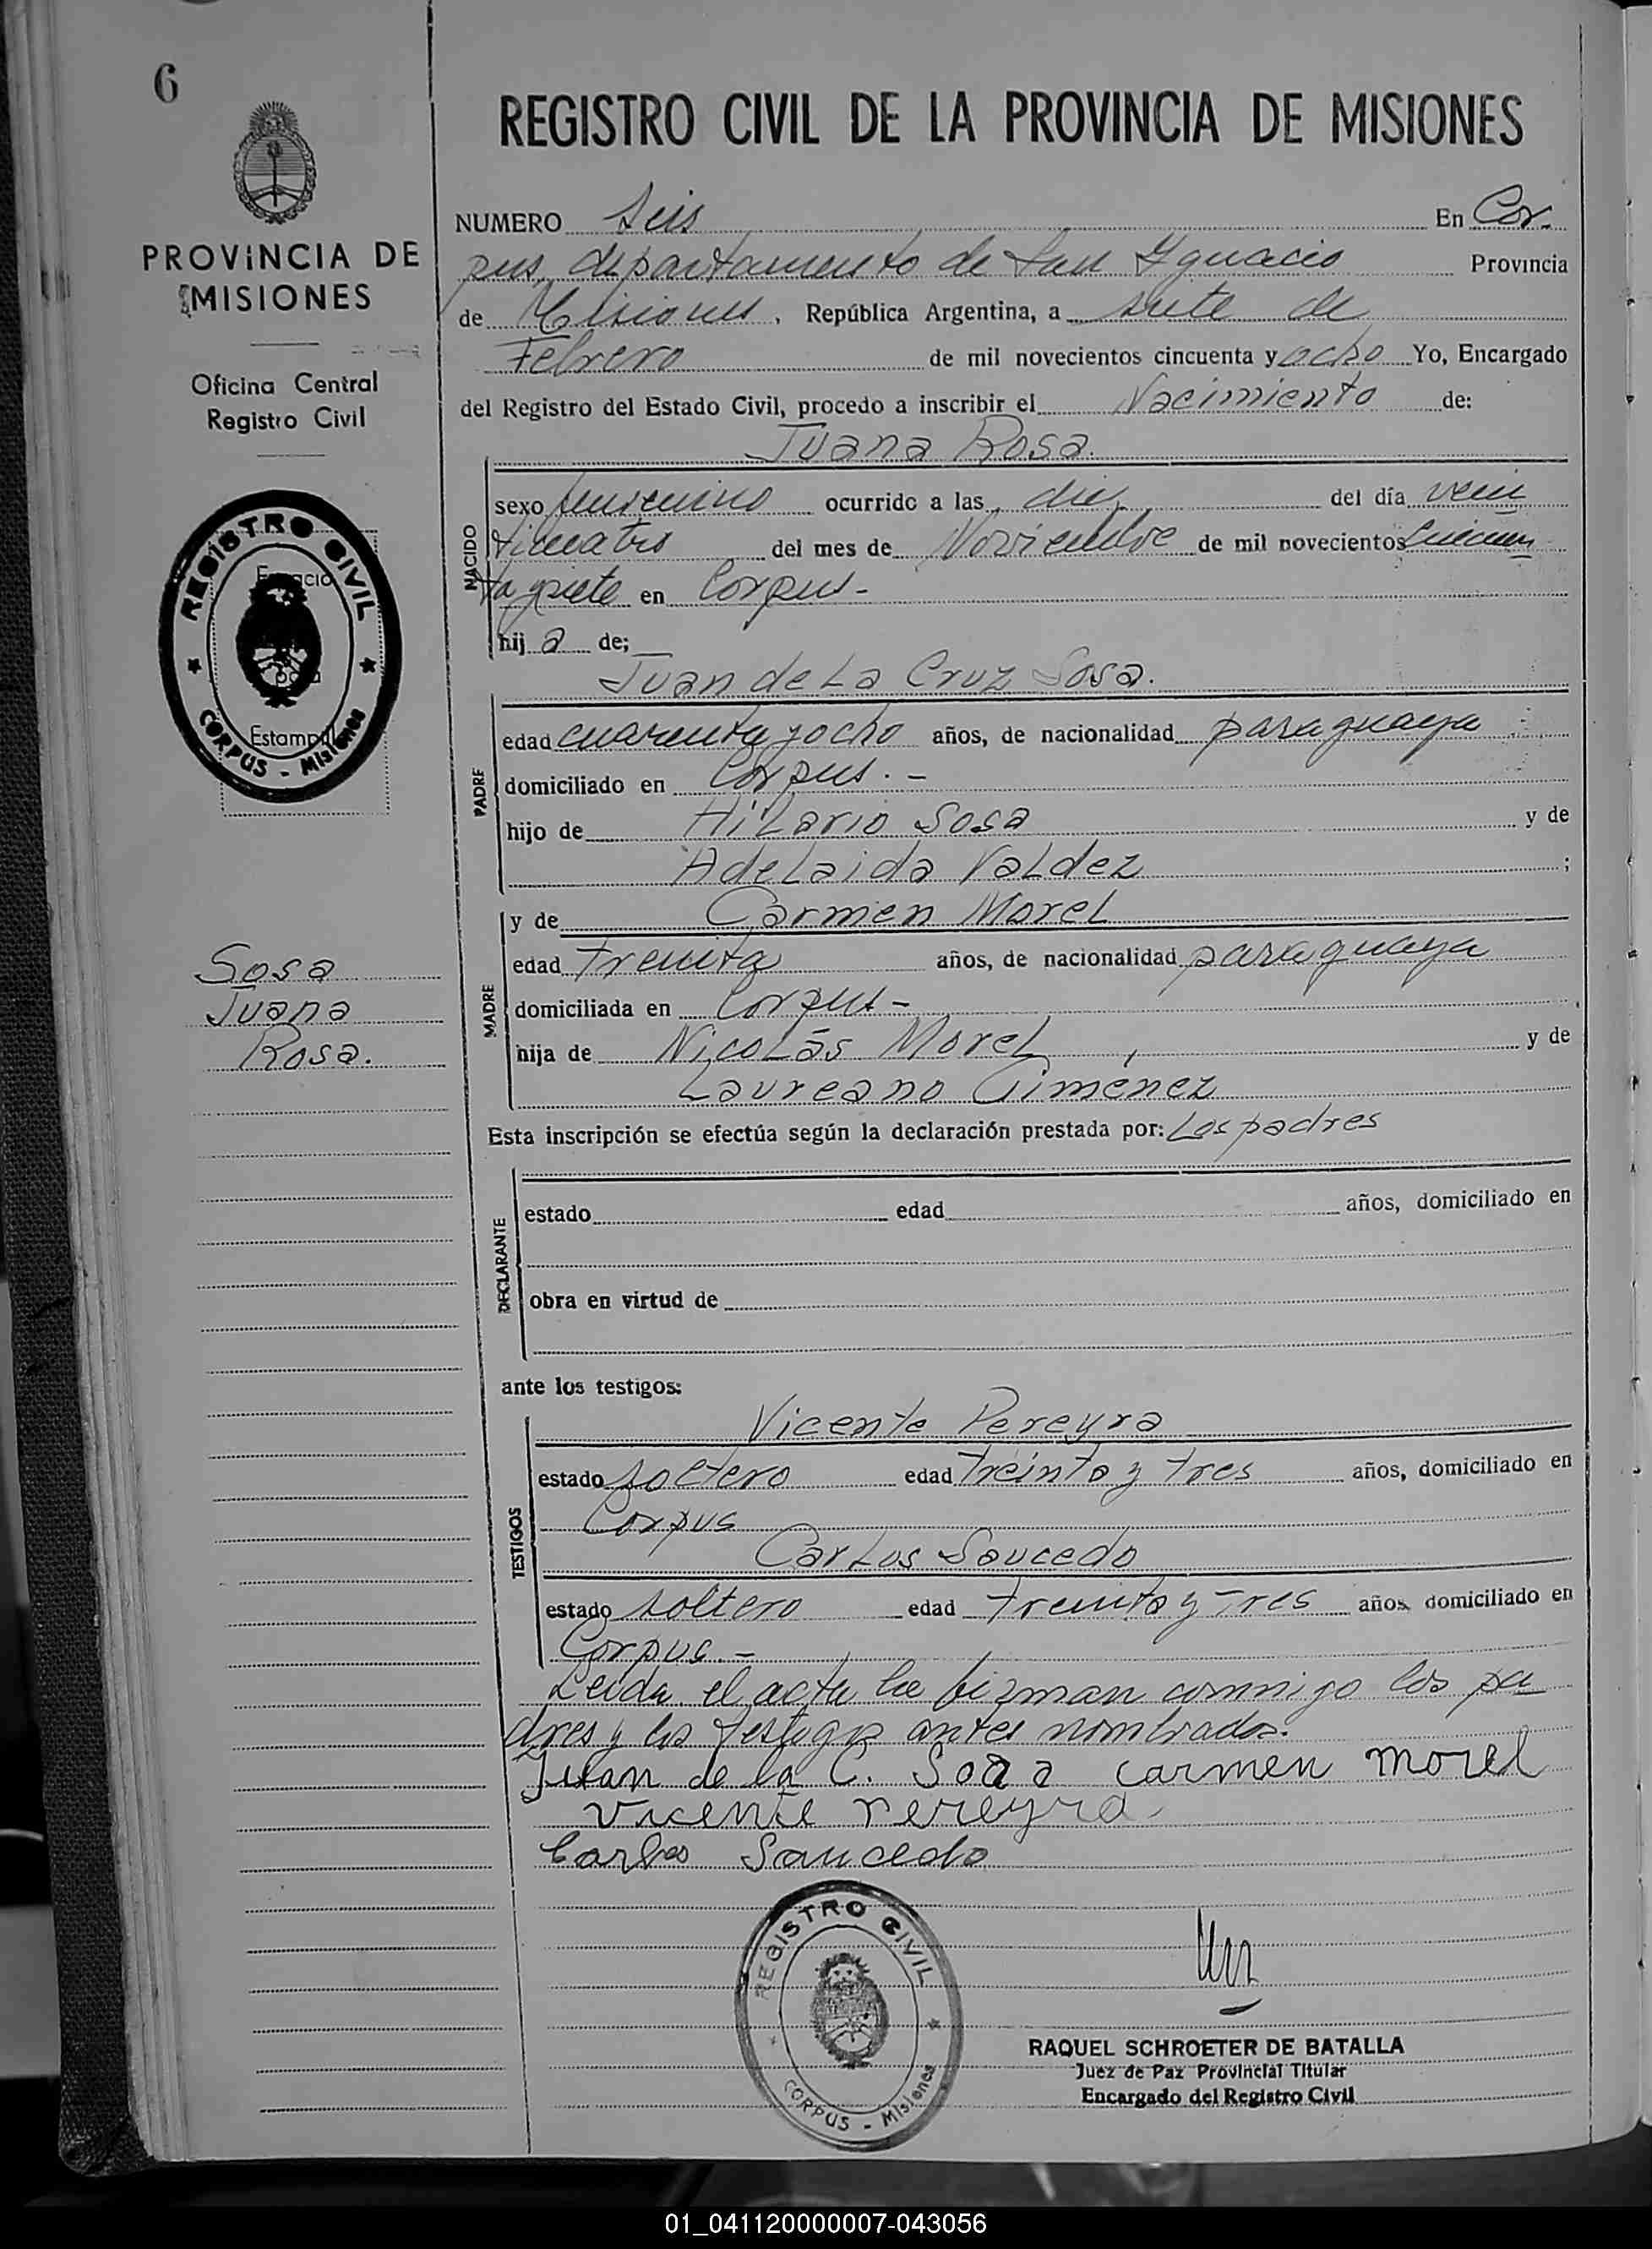 6
REGISTRO CIVIL DE LA PROVINCIA DE MISIONES
PROVINCIA DE
MISIONES
Oficina Central
Registro Civil
REGISTRO CIVIL
Espacio
para
Estampilla
CORPUS - Misiones
NUMERO Seis En Cor-
pus, departamento de San Ygnacio Provincia
de Misiones, República Argentina, a siete de
Febrero de mil novecientos cincuenta y ocho Yo, Encargado
del Registro del Estado Civil, procedo a inscribir el Nacimiento de:
Juana Rosa.
NACIDO
sexo femenino ocurrido a las diez del día vein
ticuatro del mes de Noviembre de mil novecientos cincuen
ta y siete en Corpus-
hij a de;
Juan de La Cruz Sosa.
PADRE
edad cuarenta y ocho años, de nacionalidad paraguaya
domiciliado en Corpus.-
hijo de Hilario Sosa y de
Adelaida Valdez ;
MADRE
y de Carmen Morel
edad treinta años, de nacionalidad paraguaya
domiciliada en Corpus-
hija de Nicolás Morel, y de
Laureano Giménez
Sosa
Juana
Rosa.
Esta inscripción se efectúa según la declaración prestada por: Los padres
DECLARANTE
estado edad años, domiciliado en
obra en virtud de
ante los testigos:
TESTIGOS
Vicente Pereyra
estado soltero edad treinta y tres años, domiciliado en
Corpus
Carlos Saucedo
estado soltero edad treinta y tres años, domiciliado en
Corpus.-
Leida el acta la firman conmigo los pa
dres y los testigos antes nombrados.
Juan de la C. Sosa Carmen Morel
Vicente Pereyra
Carlos Saucedo
REGISTRO CIVIL
CORPUS - Misiones
RAQUEL SCHROETER DE BATALLA
Juez de Paz Provincial Titular
Encargado del Registro Civil
01_041120000007-043056